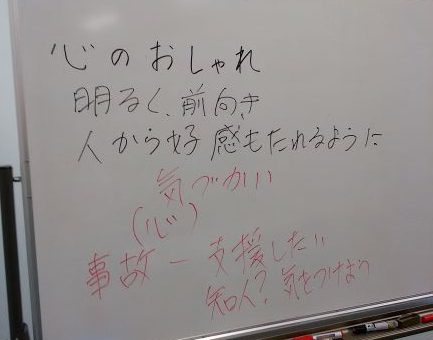 心のおしゃれ
明るく、前向き
人から好感もたれるように
気づかい
(心)
事故ー支援したい
知人?気をつけよう